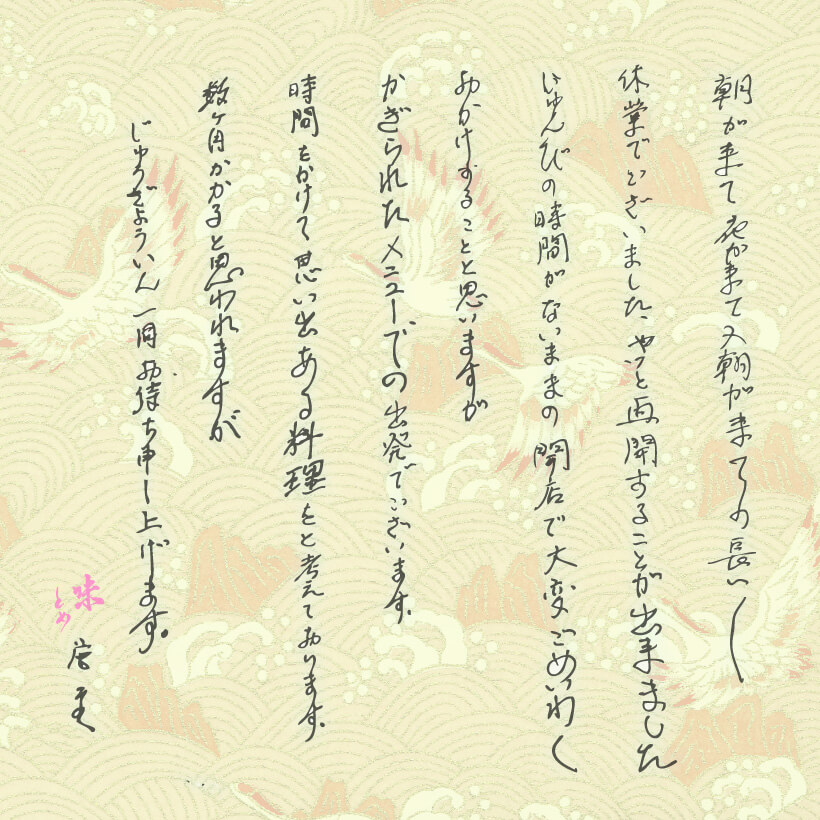 朝が来て夜が来て又朝が来ての長い
休業でございました、やっと再開することが出来ました
じゅんびの時間がないままの開店で大変ごめいわく
おかけすることと思いますが
かぎられたメニューでの出発でございます。
時間をかけて思い出ある料理をと考えております。
数ヶ月かかると思われますが
じゅうぎょういん一同お待ち申し上げます。
味
とめ
店主